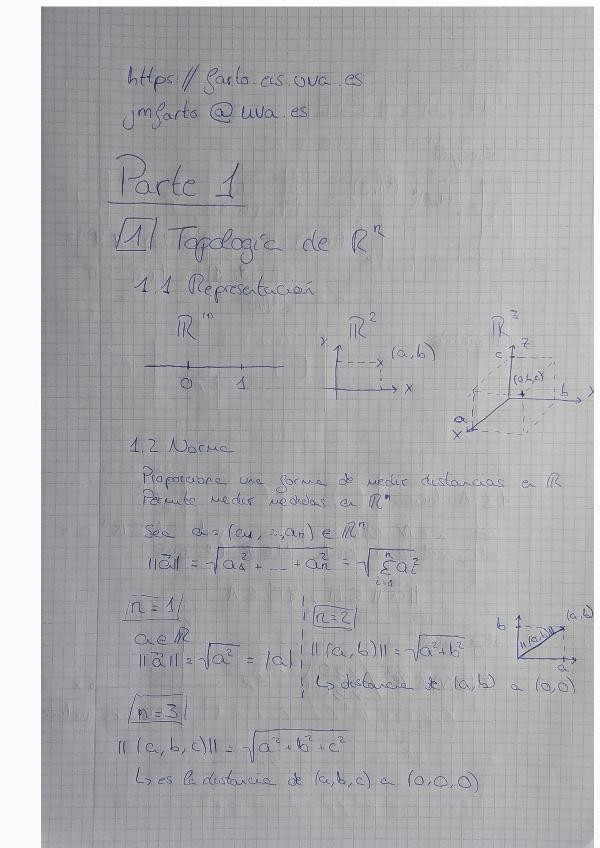 https// farto.eis.uva.es
jmfarto @ uva.es
Parte 1
1 Topología de ℝⁿ
1.1 Representación
ℝ⁽¹⁾ ℝ² ℝ³
0 1
y (a,b) x
z c (a,b,c) b y a x
1.2 Norma
Proporciona una forma de medir distancias en ℝ
Permite medir medidas en ℝⁿ
Sea a = (a₁, ..., aₙ) ∈ ℝⁿ
||a⃗|| = √(a₁² + ... + aₙ²) = √(∑ᵢ₌₁ⁿ aᵢ²)
n = 1
a ∈ ℝ
||a⃗|| = √a² = |a|
n = 2
||(a,b)|| = √(a²+b²)
↳ distancia de (a,b) a (0,0)
b (a,b) ||(a,b)|| a
n = 3
||(a,b,c)|| = √(a² + b² + c²)
↳ es la distancia de (a,b,c) a (0,0,0)